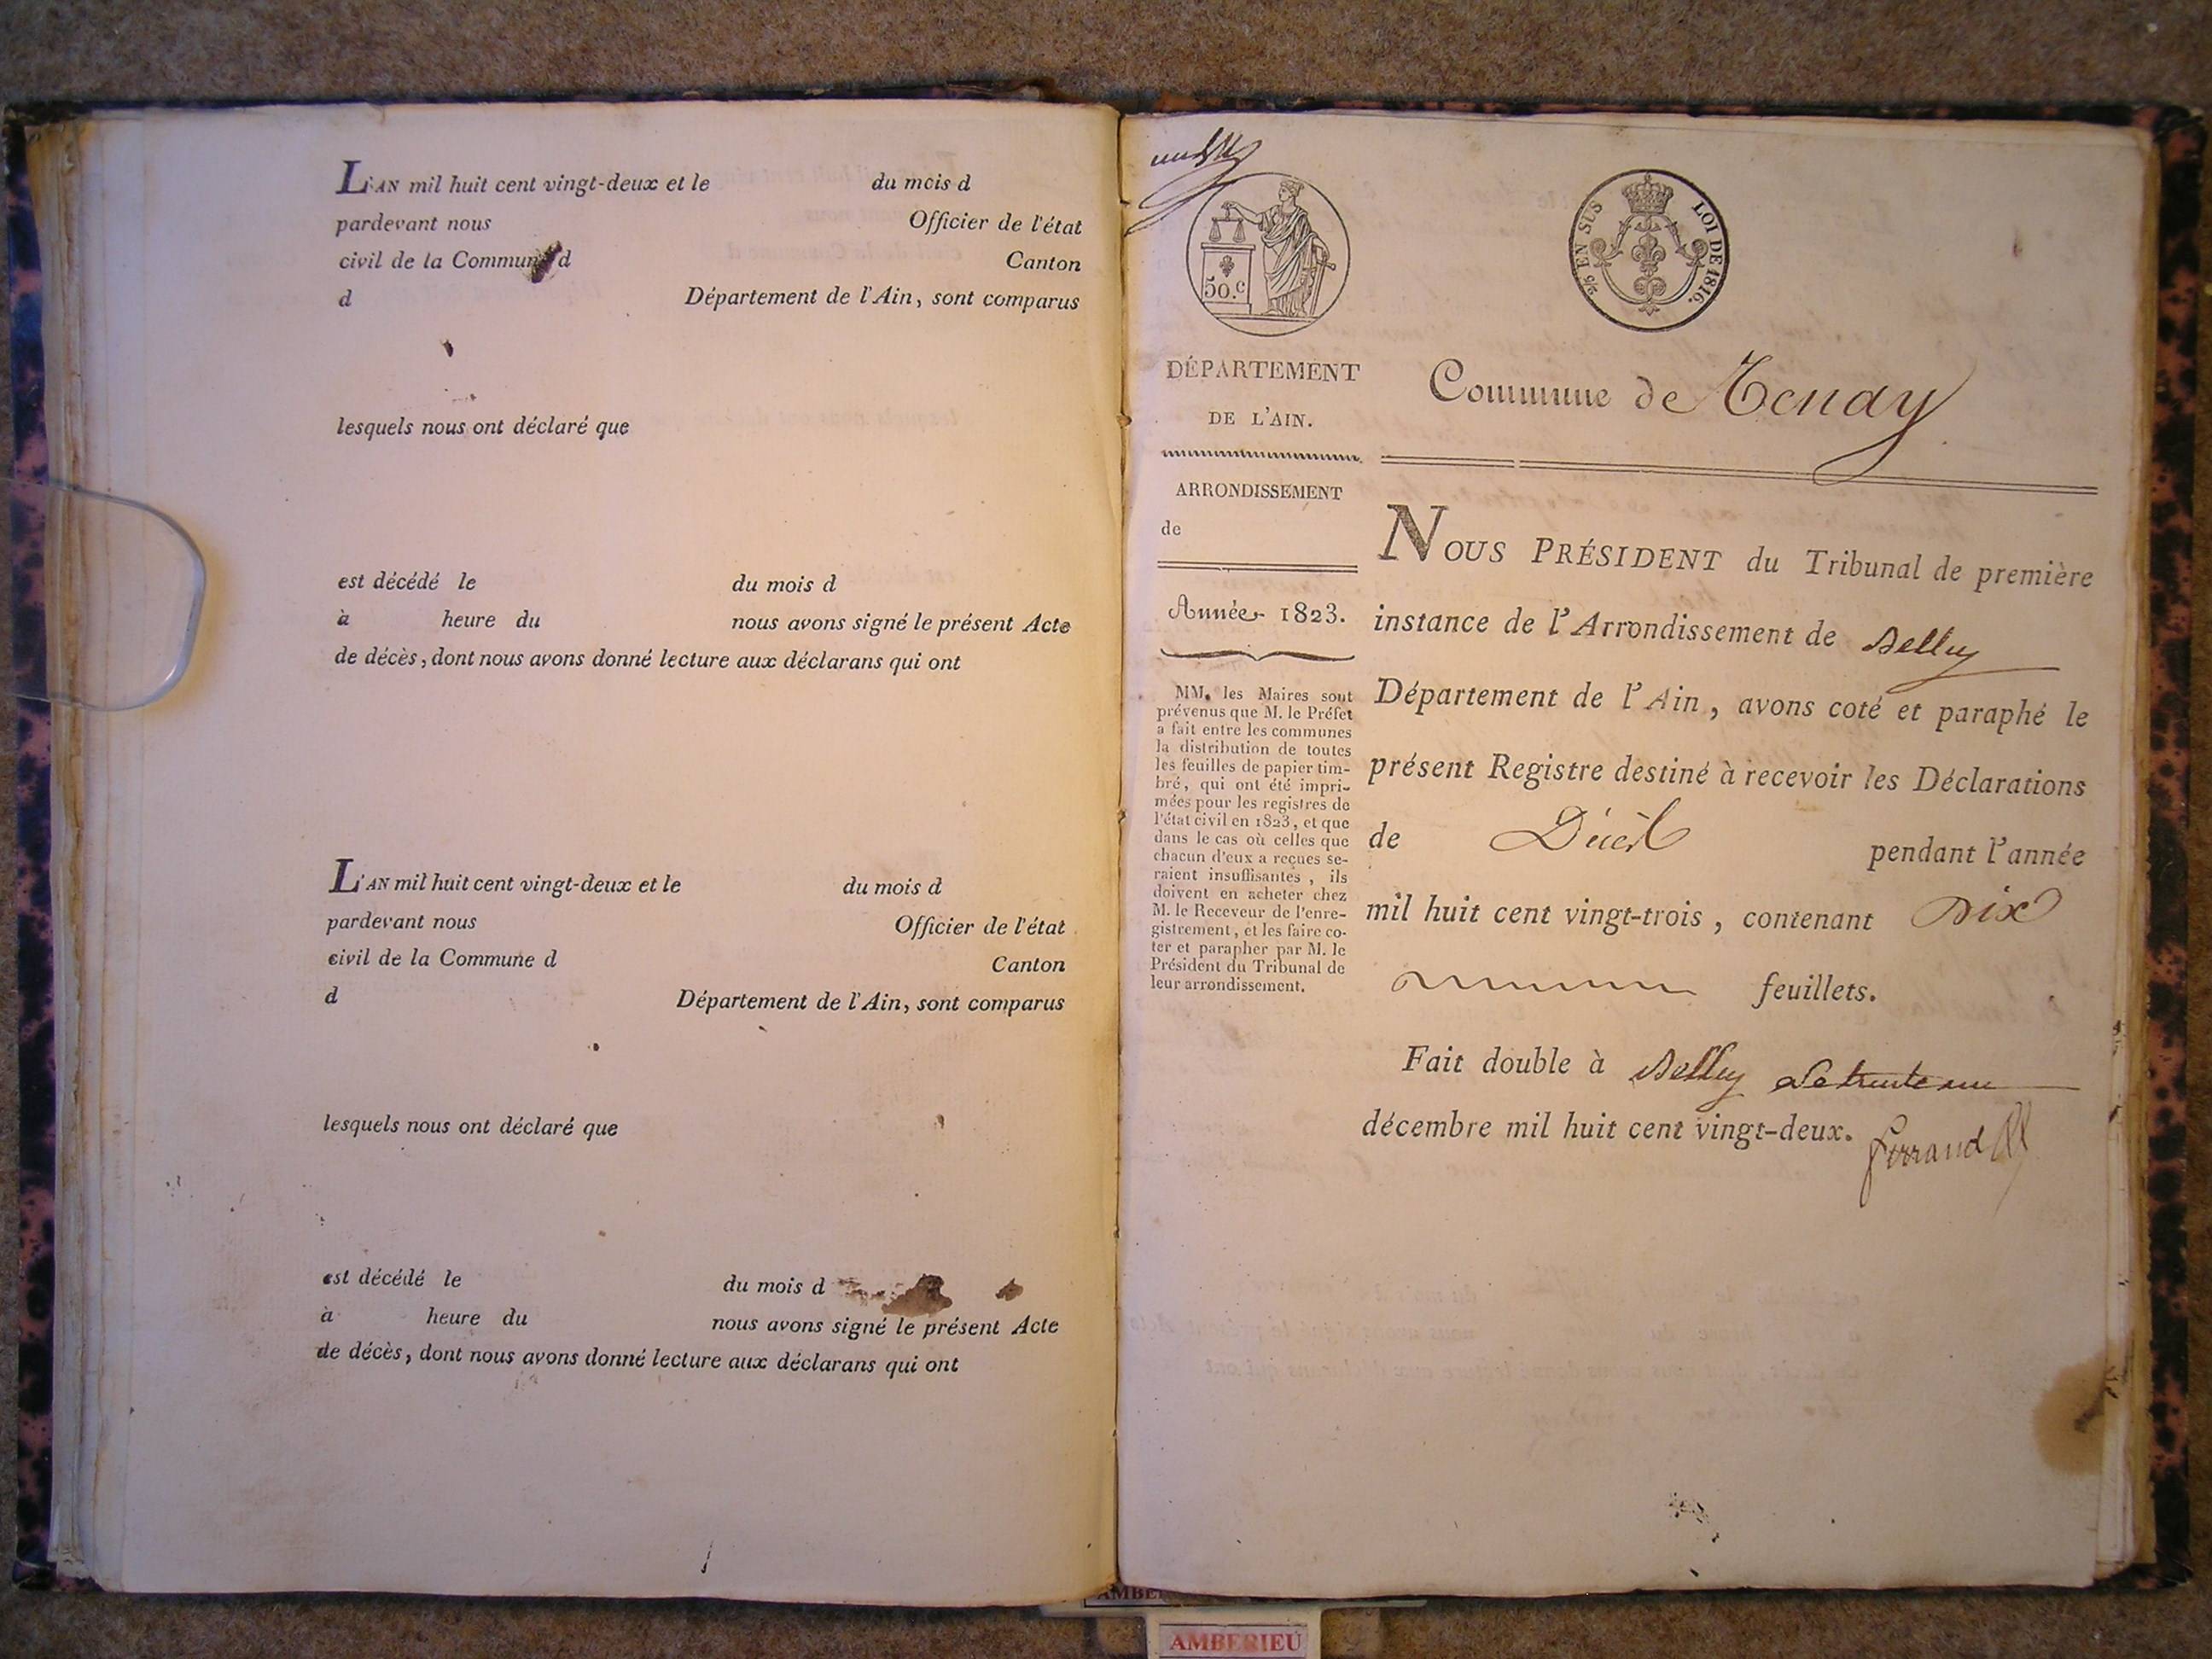 L'AN mil huit cent vingt-deux et le du mois d
pardevant nous Officier de l'état
civil de la Commune d Canton
d Département de l'Ain, sont comparus
lesquels nous ont déclaré que
est décédé le du mois d
à heure du nous avons signé le présent Acte
de décès, dont nous avons donné lecture aux déclarans qui ont
L'AN mil huit cent vingt-deux et le du mois d
pardevant nous Officier de l'état
civil de la Commune d Canton
d Département de l'Ain, sont comparus
lesquels nous ont déclaré que
est décédé le du mois d
à heure du nous avons signé le présent Acte
de décès, dont nous avons donné lecture aux déclarans qui ont
50.c
EN SUS LOI DE 1816.
DÉPARTEMENT
DE L'AIN.
ARRONDISSEMENT
de
Année 1823.
MM. les Maires sont
prévenus que M. le Préfet
a fait entre les communes
la distribution de toutes
les feuilles de papier tim-
bré, qui ont été impri-
mées pour les registres de
l'état civil en 1823, et que
dans le cas où celles que
chacun d'eux a reçues se-
raient insuffisantes, ils
doivent en acheter chez
M. le Receveur de l'enre-
gistrement, et les faire co-
ter et parapher par M. le
Président du Tribunal de
leur arrondissement.
Commune de Tenay
NOUS PRÉSIDENT du Tribunal de première
instance de l'Arrondissement de Belley
Département de l'Ain, avons coté et paraphé le
présent Registre destiné à recevoir les Déclarations
de Décès pendant l'année
mil huit cent vingt-trois, contenant Dix
feuillets.
Fait double à Belley le trente un
décembre mil huit cent vingt-deux.
Ferrand
AMBERIEU